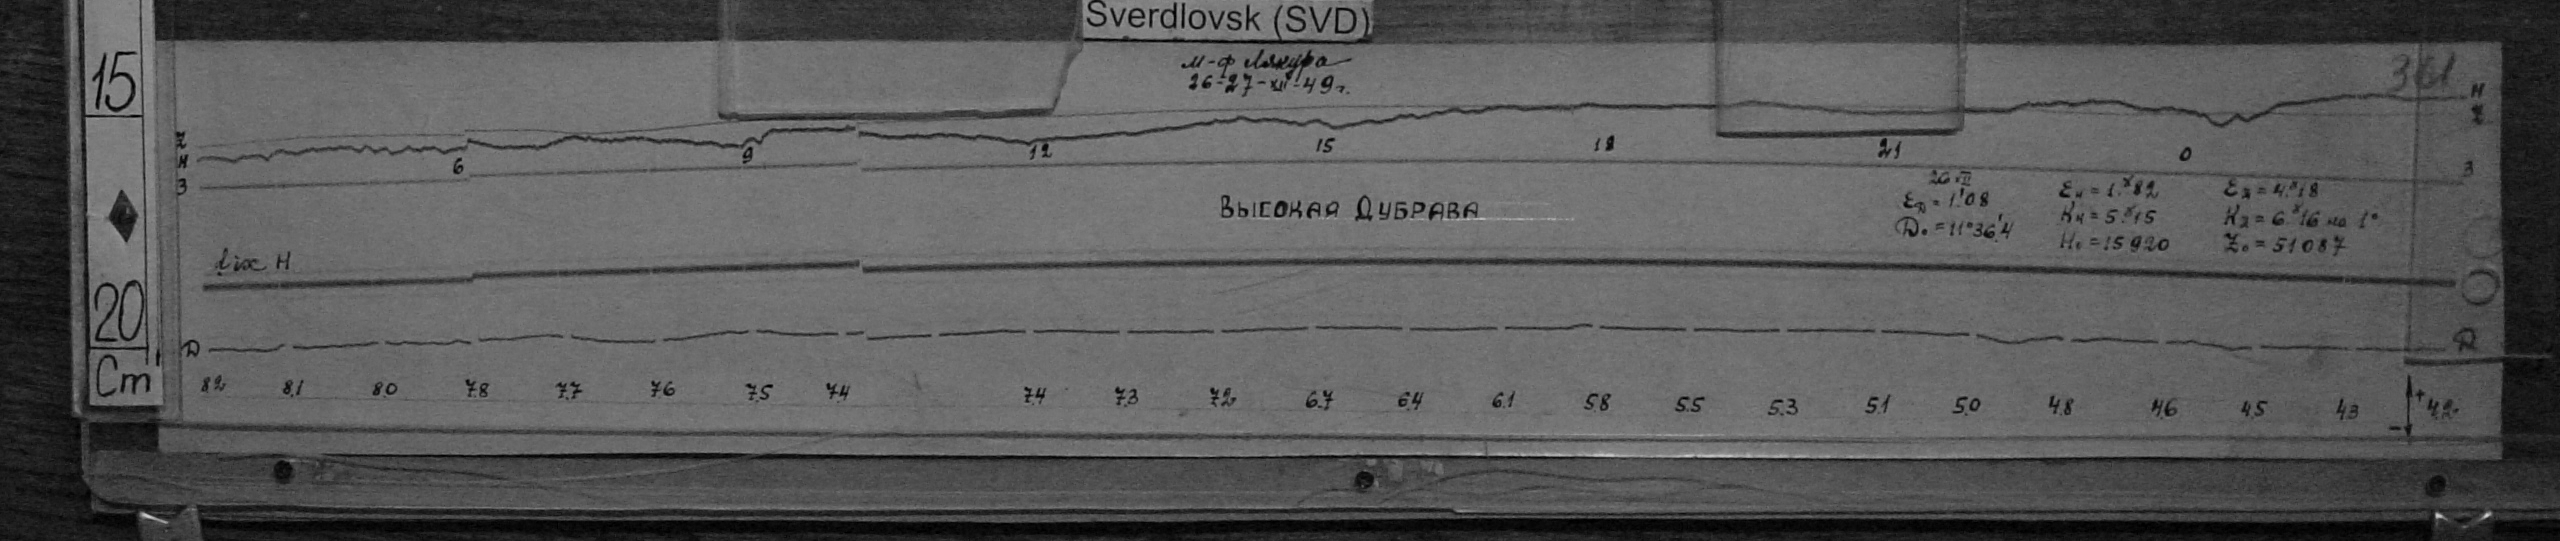 Sverdlovsk (SVD)
15
м-ф Лякура
26-27-XII-49г.
361
Z
H
З
H
Z
З
6
9
12
15
18
21
0
ВЫСОКАЯ ДУБРАВА
26 XII
ε_D = 1.'08
D₀ = 11°36.'4
ε_H = 1.ˠ82
K_H = 5.ˠ15
H₀ = 15920
ε_Z = 4.ˠ18
K_Z = 6.ˠ16 на 1°
Z₀ = 51087
fix H
20
Cm
D
D
8.2 8.1 8.0 7.8 7.7 7.6 7.5 7.4 7.4 7.3 7.2 6.7 6.4 6.1 5.8 5.5 5.3 5.1 5.0 4.8 4.6 4.5 4.3 + 4.2
-